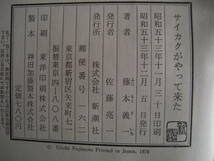 サイカクがやって来た
昭和五十三年十一月三十日印刷
昭和五十三年十二月 五 日発行
著者 藤本義一
発行者 佐藤亮一
発行所 株式会社 新潮社
郵便番号 一六二
東京都新宿区矢来町七一
振替東京四―八〇八番
印刷 東洋印刷株式会社
製本 神田加藤製本株式会社
定価七八〇円
© Giichi Fujimoto Printed in Japan, 1978